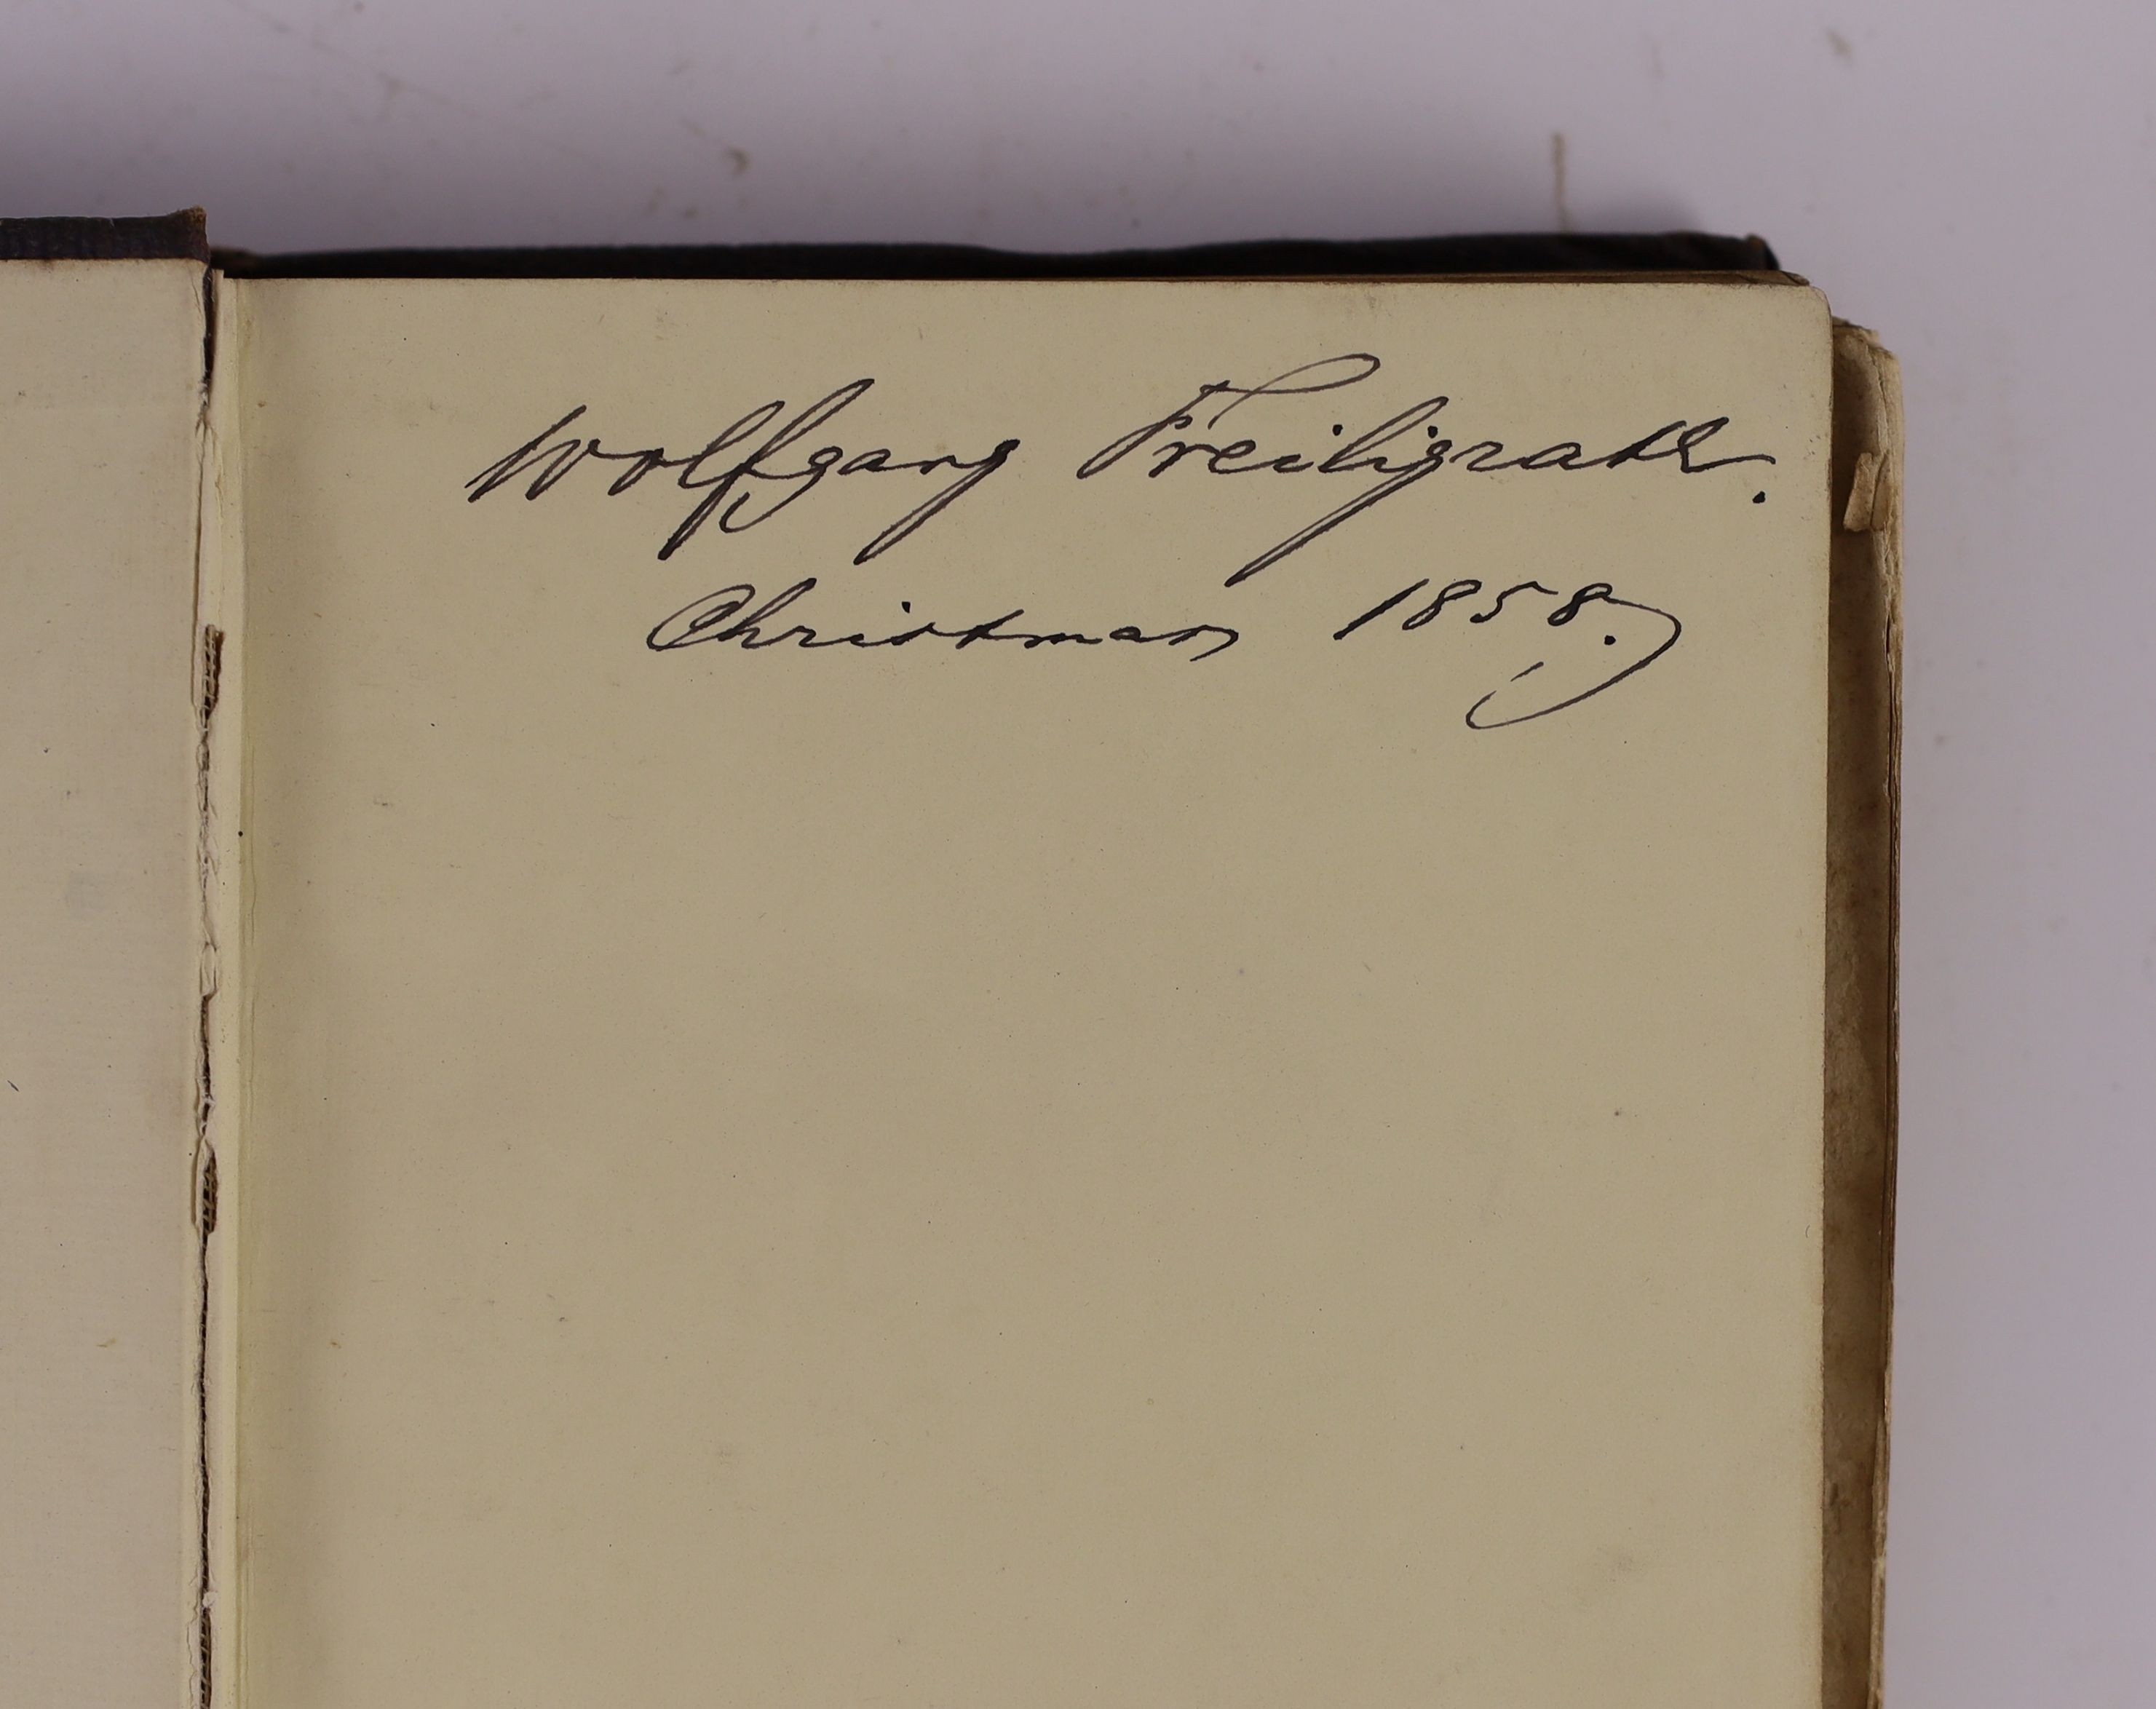 Wolfgang Freiligrath.
Christmas 1858.